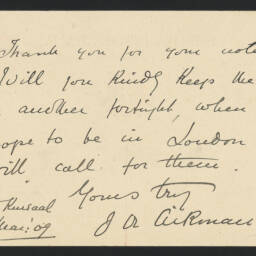 Thank you for your note
Will you kindly keep the
another fortnight, when
hope to be in London
will call for them.
Yours try
J A Aikman
Kursaal
Mar: 09